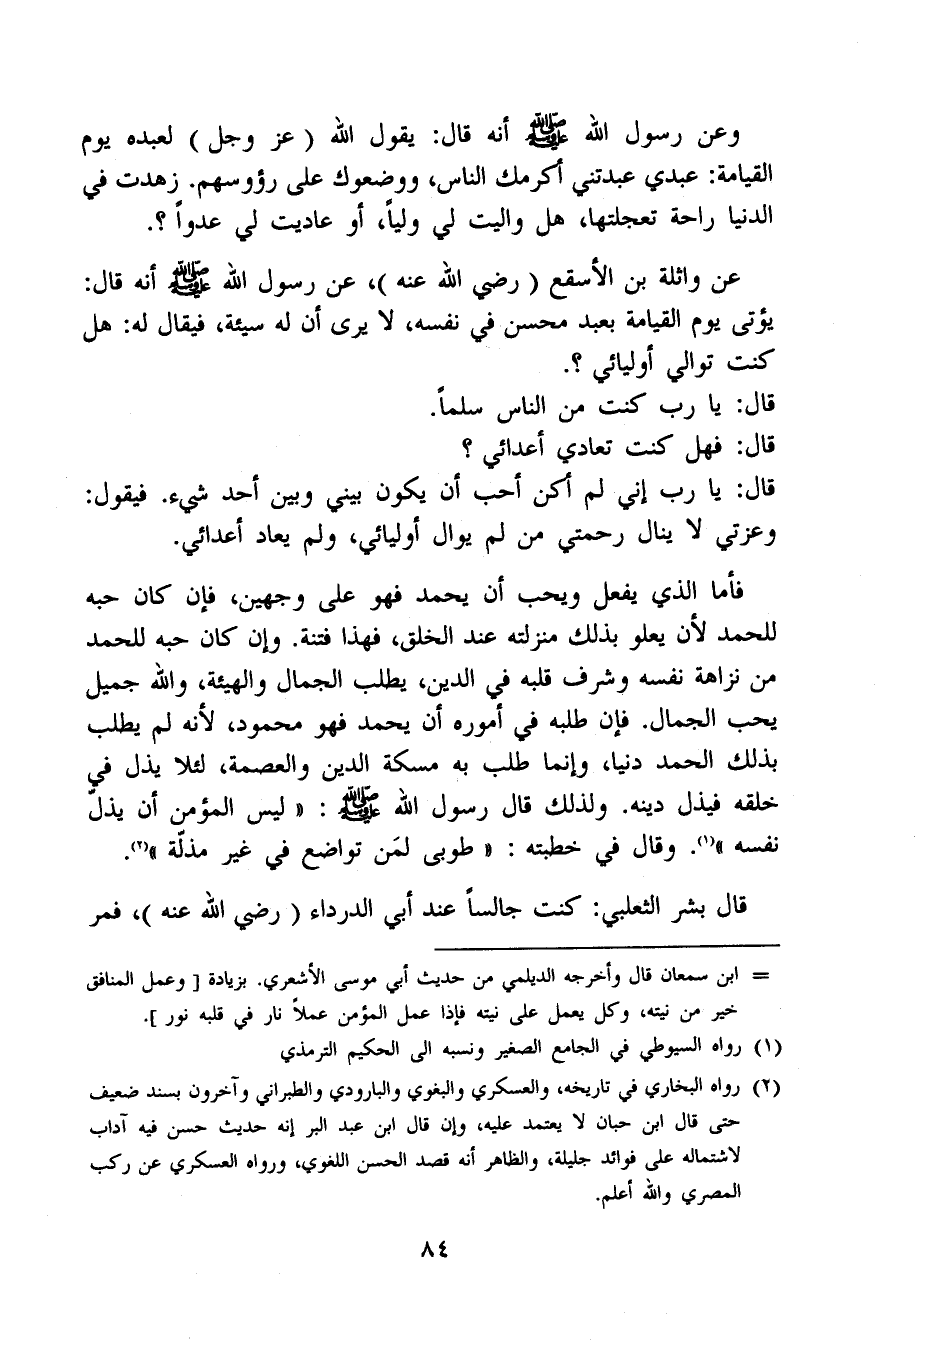 وعن رسول الله ﷺ أنه قال: يقول الله ( عز وجل ) لعبده يوم
القيامة: عبدي عبدتني أكرمك الناس، ووضعوك على رؤوسهم. زهدت في
الدنيا راحة تعجلتها، هل واليت لي ولياً، أو عاديت لي عدواً ؟.
عن واثلة بن الأسقع ( رضي الله عنه )، عن رسول الله ﷺ أنه قال:
يؤتى يوم القيامة بعبد محسن في نفسه، لا يرى أن له سيئة، فيقال له: هل
كنت توالي أوليائي ؟.
قال: يا رب كنت من الناس سلماً.
قال: فهل كنت تعادي أعدائي ؟
قال: يا رب إني لم أكن أحب أن يكون بيني وبين أحد شيء. فيقول:
وعزتي لا ينال رحمتي من لم يوال أوليائي، ولم يعاد أعدائي.
فأما الذي يفعل ويحب أن يحمد فهو على وجهين، فإن كان حبه
للحمد لأن يعلو بذلك منزلته عند الخلق، فهذا فتنة. وإن كان حبه للحمد
من نزاهة نفسه وشرف قلبه في الدين، يطلب الجمال والهيئة، والله جميل
يحب الجمال. فإن طلبه في أموره أن يحمد فهو محمود، لأنه لم يطلب
بذلك الحمد دنيا، وإنما طلب به مسكة الدين والعصمة، لئلا يذل في
خلقه فيذل دينه. ولذلك قال رسول الله ﷺ : « ليس المؤمن أن يذلّ
نفسه »(١). وقال في خطبته : « طوبى لمَن تواضع في غير مذلّة »(٢).
قال بشر الثعلبي: كنت جالساً عند أبي الدرداء ( رضي الله عنه )، فمر
= ابن سمعان قال وأخرجه الديلمي من حديث أبي موسى الأشعري. بزيادة [ وعمل المنافق
خير من نيته، وكل يعمل على نيته فإذا عمل المؤمن عملاً نار في قلبه نور ].
(١) رواه السيوطي في الجامع الصغير ونسبه الى الحكيم الترمذي
(٢) رواه البخاري في تاريخه، والعسكري والبغوي والبارودي والطبراني وآخرون بسند ضعيف
حتى قال ابن حبان لا يعتمد عليه، وإن قال ابن عبد البر إنه حديث حسن فيه آداب
لاشتماله على فوائد جليلة، والظاهر أنه قصد الحسن اللغوي، ورواه العسكري عن ركب
المصري والله أعلم.
٨٤